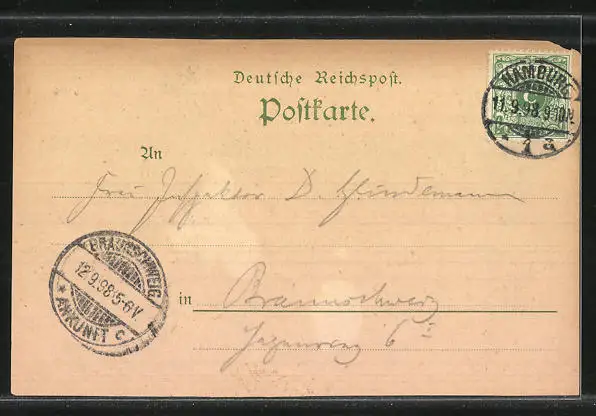 Deutsche Reichspost.
Postkarte.
HAMBURG
11.9.98.9-10N
1 a
An
Frau Inspektor D.
BRAUNSCHWEIG
12.9.98.5-6V
* ANKUNFT c
in Braunschweig